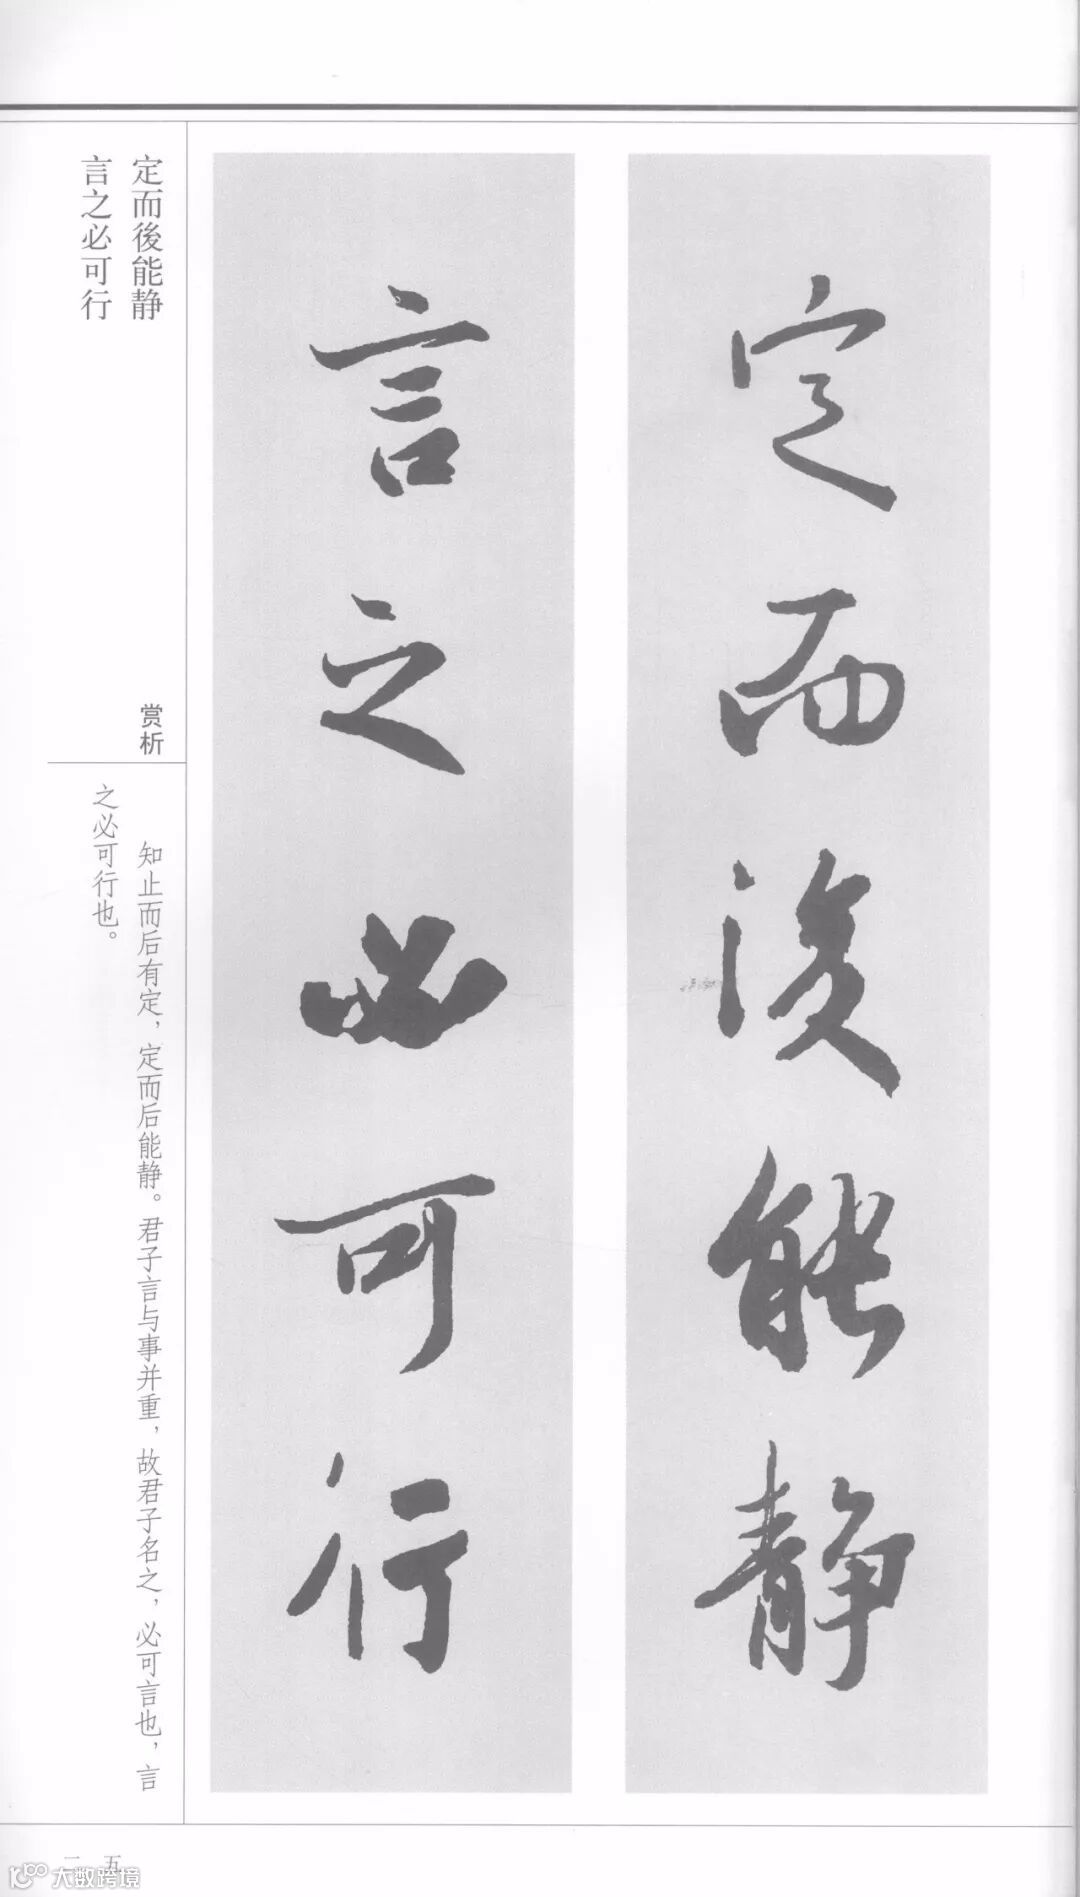 定而後能静
言之必可行
定而後能静
言之必可行
赏析
知止而后有定，定而后能静。君子言与事并重，故君子名之，必可言也，言
之必可行也。
大数跨境